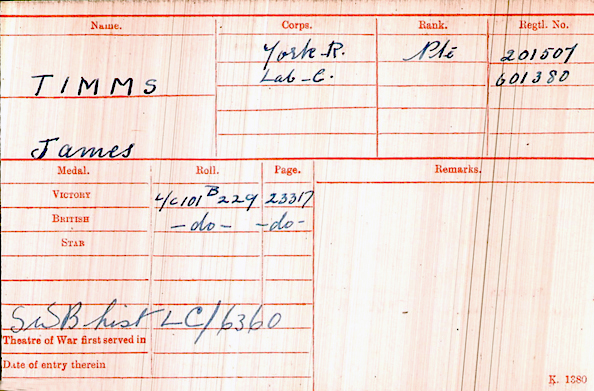 Name. Corps. Rank. Regtl. No.
York. R. Pte 201507
TIMMS Lab. C. 601380
James
Medal. Roll. Page. Remarks.
VICTORY L/C101 B 229 23317
BRITISH -do- -do-
STAR
SWB List LC/6360
Theatre of War first served in
Date of entry therein
K. 1380